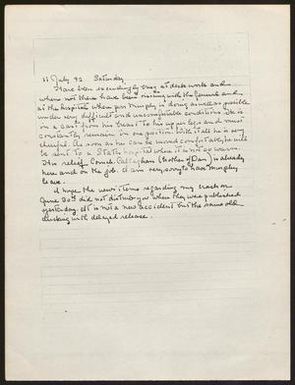 11 July 42 Saturday
Have been exceedingly busy at desk work and
when not there have been visiting with the General and
at the hospital where poor Murphy is doing as well as possible
under very difficult and uncomfortable conditions. He is
in a cast from his breast to his upper legs and must
constantly remain in one position. With it all he is very
cheerful. As soon as he can be moved comfortably he will
be sent to a States hospital where it is not so warm.
His relief, Comdr. Callaghan (brother of Dan) is already
here and on the job. I am very sorry to have Murphy
leave.
I hope the news items regarding my crash on
June 30th did not disturb you when they were published
yesterday. It is not a new accident but the same old
ducking with delayed release.